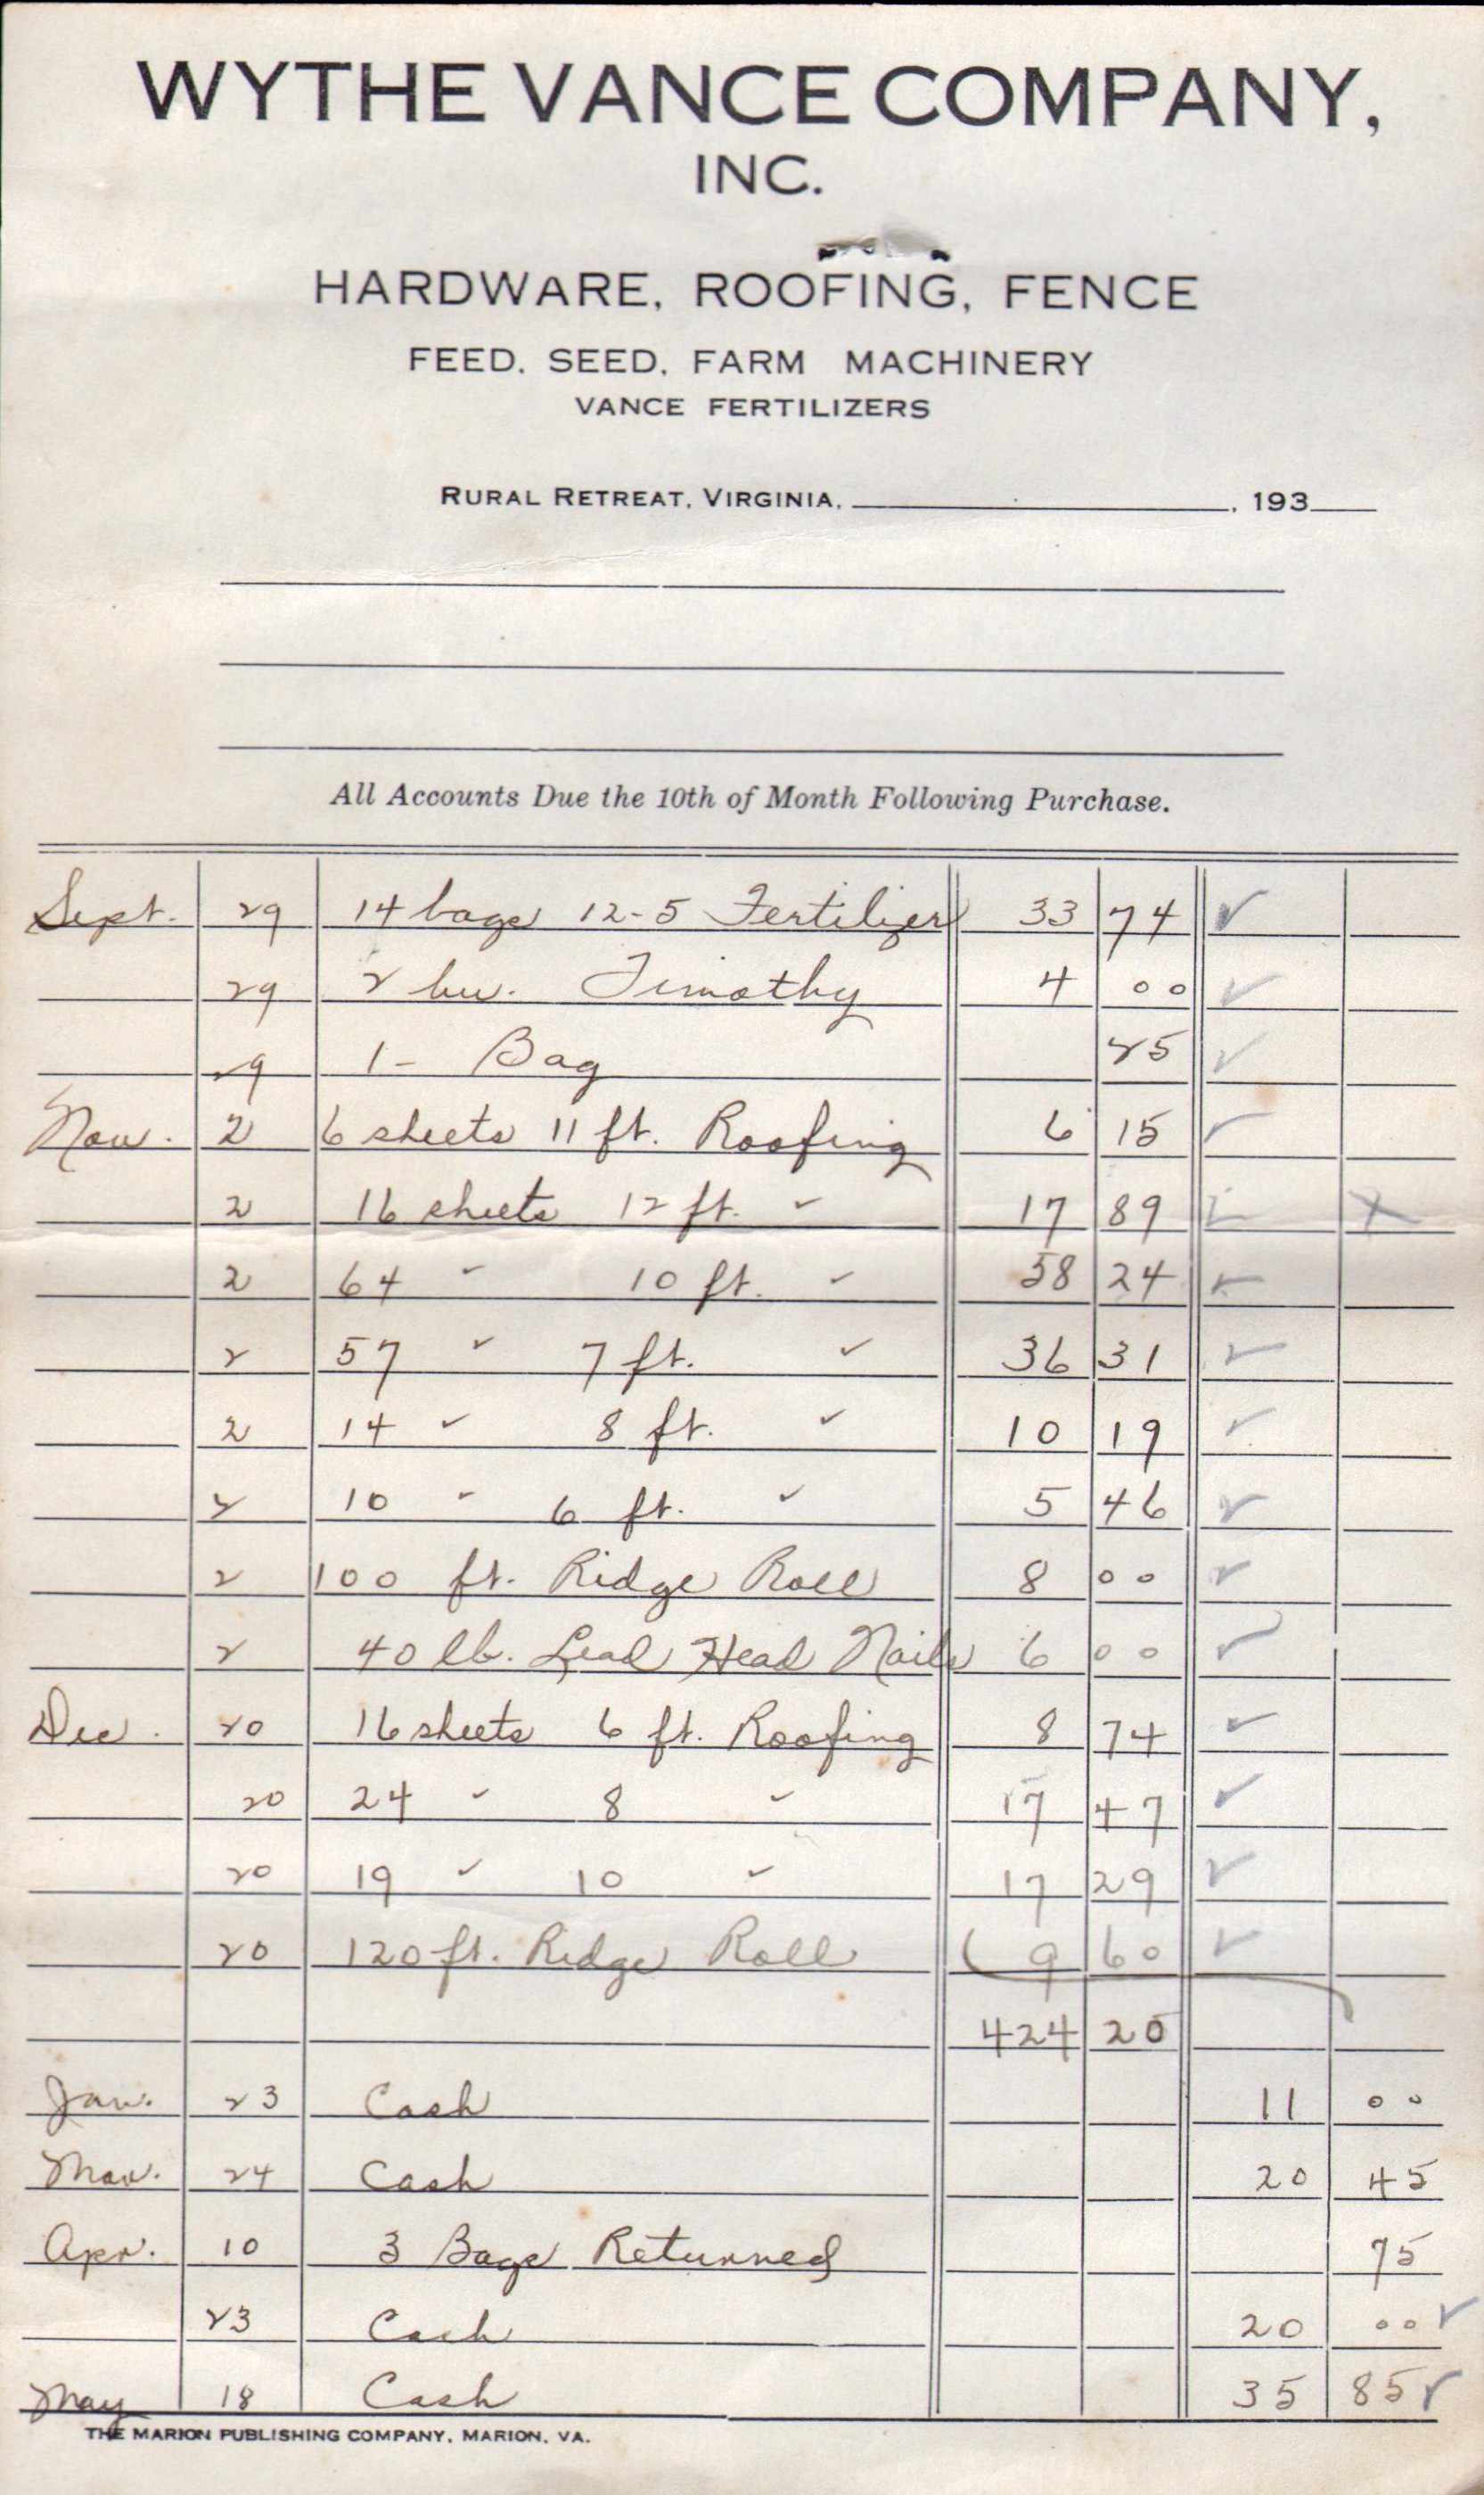 WYTHE VANCE COMPANY,
INC.
HARDWARE, ROOFING, FENCE
FEED, SEED, FARM MACHINERY
VANCE FERTILIZERS
RURAL RETREAT, VIRGINIA, , 193
All Accounts Due the 10th of Month Following Purchase.
Sept. 29 14 bags 12-5 Fertilizer 33 74 ✓
29 2 bu. Timothy 4 00 ✓
29 1- Bag 25 ✓
Nov. 2 6 sheets 11 ft. Roofing 6 15 ✓
2 16 sheets 12 ft. " 17 89 ✓ X
2 64 " 10 ft. " 58 24 ✓
2 57 " 7 ft. " 36 31 ✓
2 14 " 8 ft. " 10 19 ✓
2 10 " 6 ft. " 5 46 ✓
2 100 ft. Ridge Roll 8 00 ✓
2 40 lb. Lead Head Nails 6 00 ✓
Dec. 20 16 sheets 6 ft. Roofing 8 74 ✓
20 24 " 8 " 17 47 ✓
20 19 " 10 " 17 29 ✓
20 120 ft. Ridge Roll 9 60 ✓
424 20
Jan. 23 Cash 11 00
Mar. 24 Cash 20 45
Apr. 10 3 Bags Returned 75
23 Cash 20 00 ✓
May 18 Cash 35 85 ✓
THE MARION PUBLISHING COMPANY, MARION, VA.